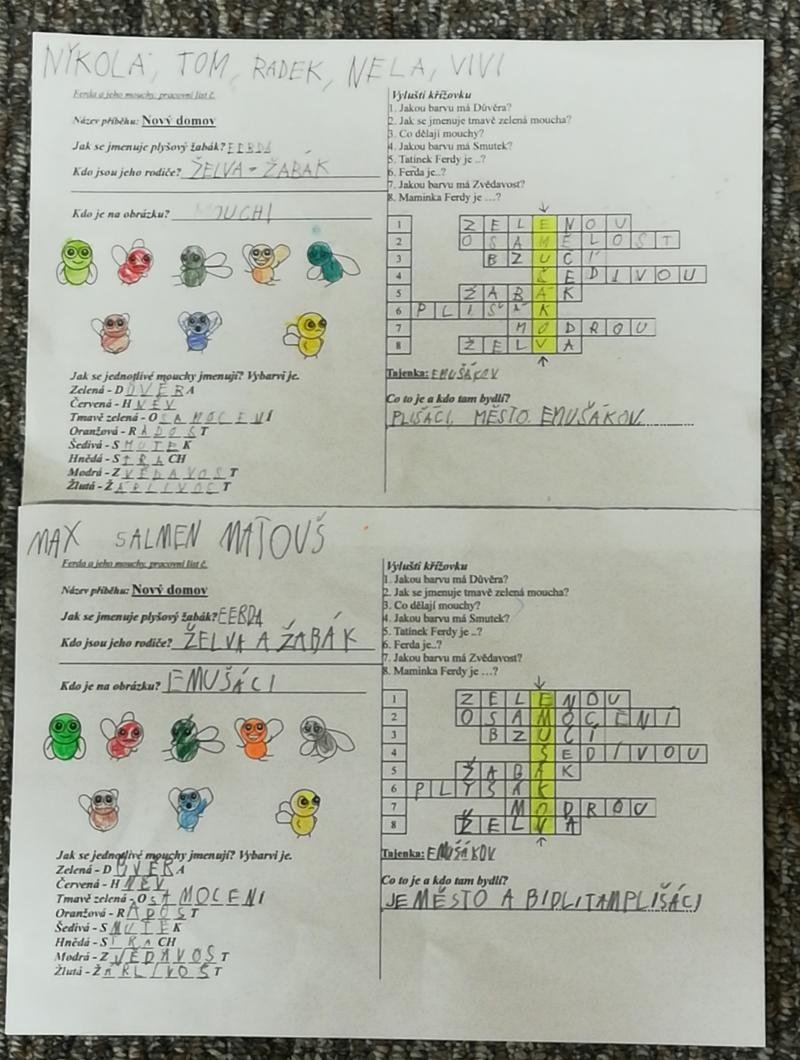 NYKOLA, TOM, RADEK, NELA, VIVI
Ferda a jeho mouchy, pracovní list č.
Název příběhu: Nový domov
Jak se jmenuje plyšový žabák? FERDA
Kdo jsou jeho rodiče? ŽELVA - ŽABÁK
Kdo je na obrázku? MOUCHI
Jak se jednotlivé mouchy jmenují? Vybarvi je.
Zelená - DŮVĚRA
Červená - HNĚV
Tmavě zelená - OSAMOCENÍ
Oranžová - RADOST
Šedivá - SMUTEK
Hnědá - STRACH
Modrá - ZVĚDAVOST
Žlutá - ŽÁRLIVOST
Vylušti křížovku
1. Jakou barvu má Důvěra?
2. Jak se jmenuje tmavě zelená moucha?
3. Co dělají mouchy?
4. Jakou barvu má Smutek?
5. Tatínek Ferdy je ..?
6. Ferda je..?
7. Jakou barvu má Zvědavost?
8. Maminka Ferdy je …?
1 ZELENOU
2 OSAMĚLOST
3 BZUČÍ
4 ŠEDIVOU
5 ŽABÁK
6 PLIŠÁK
7 MODROU
8 ŽELVA
Tajenka: EMUŠÁKOV
Co to je a kdo tam bydlí?
PLIŠÁCI, MĚSTO EMUŠÁKOV
MAX SALMEN MATOUŠ
Ferda a jeho mouchy, pracovní list č.
Název příběhu: Nový domov
Jak se jmenuje plyšový žabák? FERDA
Kdo jsou jeho rodiče? ŽELVA A ŽABÁK
Kdo je na obrázku? EMUŠÁCI
Jak se jednotlivé mouchy jmenují? Vybarvi je.
Zelená - DŮVĚRA
Červená - HNĚV
Tmavě zelená - OSAMOCENÍ
Oranžová - RADOST
Šedivá - SMUTEK
Hnědá - STRACH
Modrá - ZVĚDAVOST
Žlutá - ŽÁRLIVOST
Vylušti křížovku
1. Jakou barvu má Důvěra?
2. Jak se jmenuje tmavě zelená moucha?
3. Co dělají mouchy?
4. Jakou barvu má Smutek?
5. Tatínek Ferdy je ..?
6. Ferda je..?
7. Jakou barvu má Zvědavost?
8. Maminka Ferdy je …?
1 ZELENOU
2 OSAMOCENÍ
3 BZUČÍ
4 ŠEDIVOU
5 ŽABÁK
6 PLYŠÁK
7 MODROU
8 ŽELVA
Tajenka: EMUŠÁKOV
Co to je a kdo tam bydlí?
JE MĚSTO A BIDLI TAM PLIŠÁCI